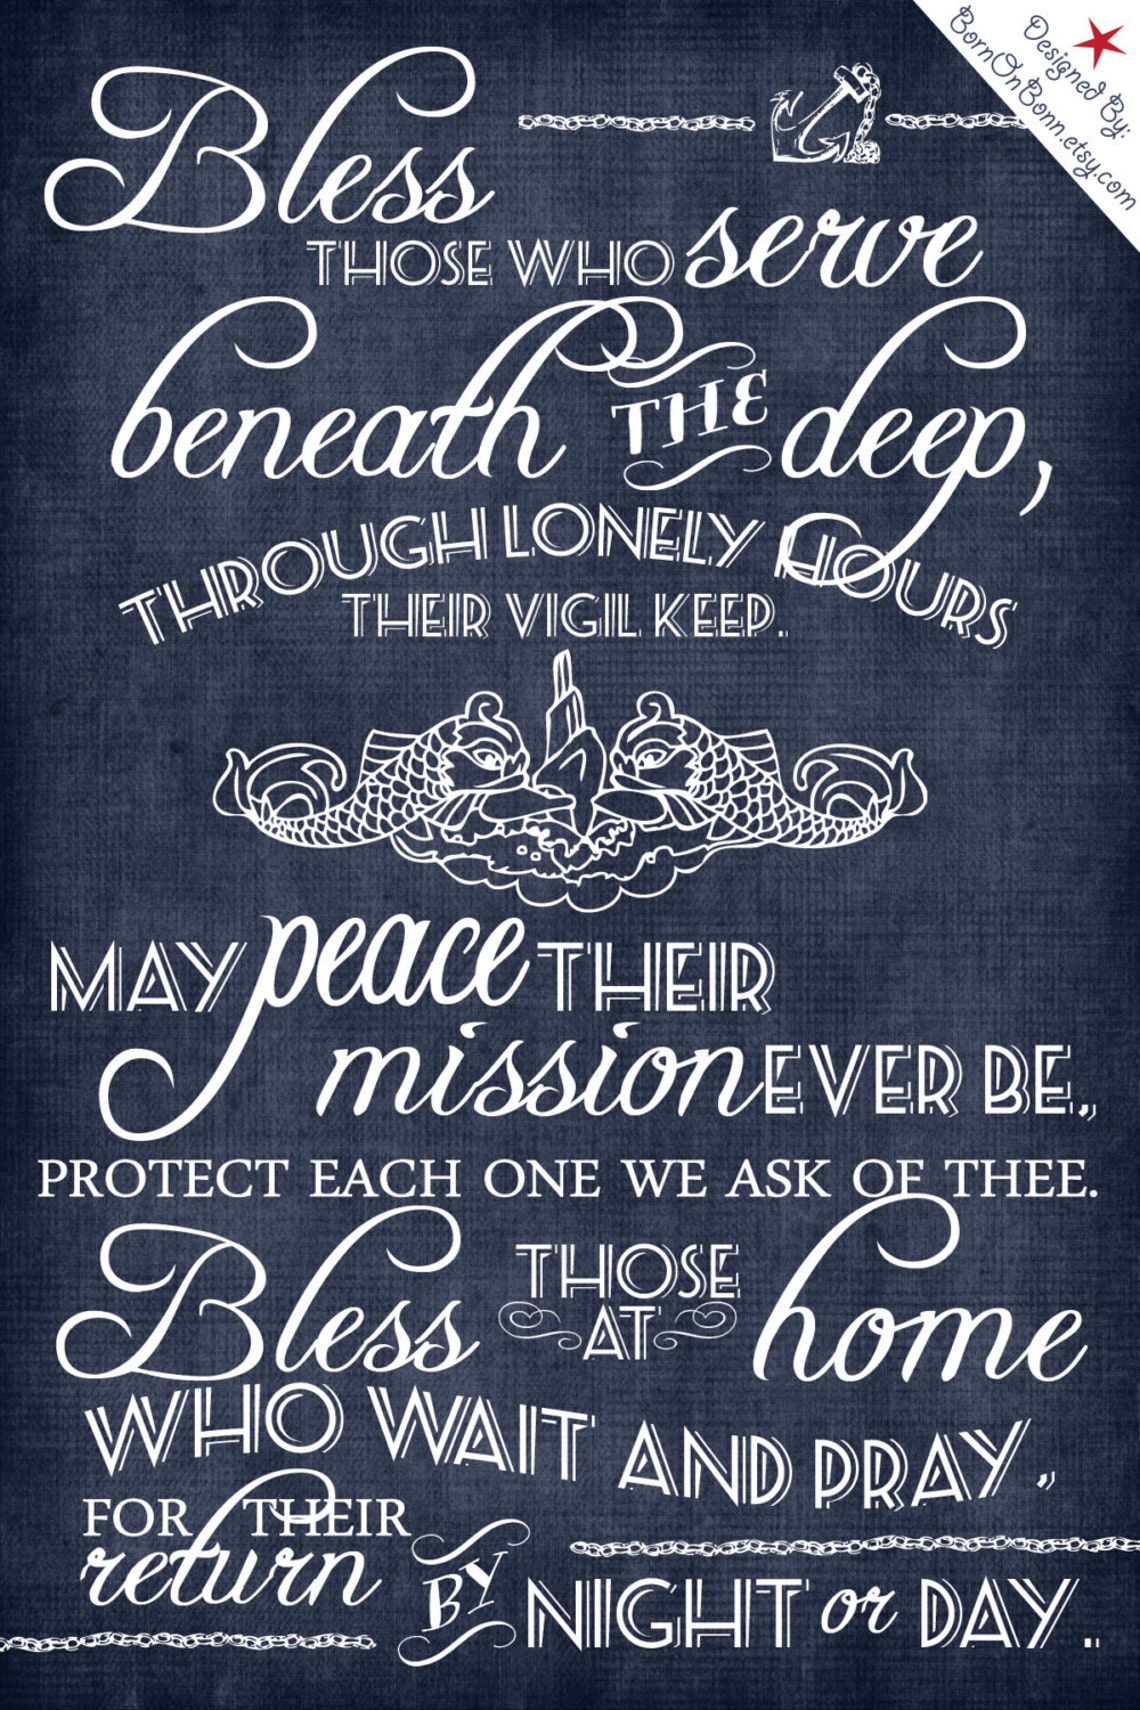 Designed By:
BornOnBonn.etsy.com
Bless
THOSE WHO serve
beneath THE deep,
THROUGH LONELY HOURS
THEIR VIGIL KEEP.
MAY peace THEIR
mission EVER BE,
PROTECT EACH ONE WE ASK OF THEE.
Bless THOSE AT home
WHO WAIT AND PRAY,
FOR THEIR
return BY NIGHT or DAY.